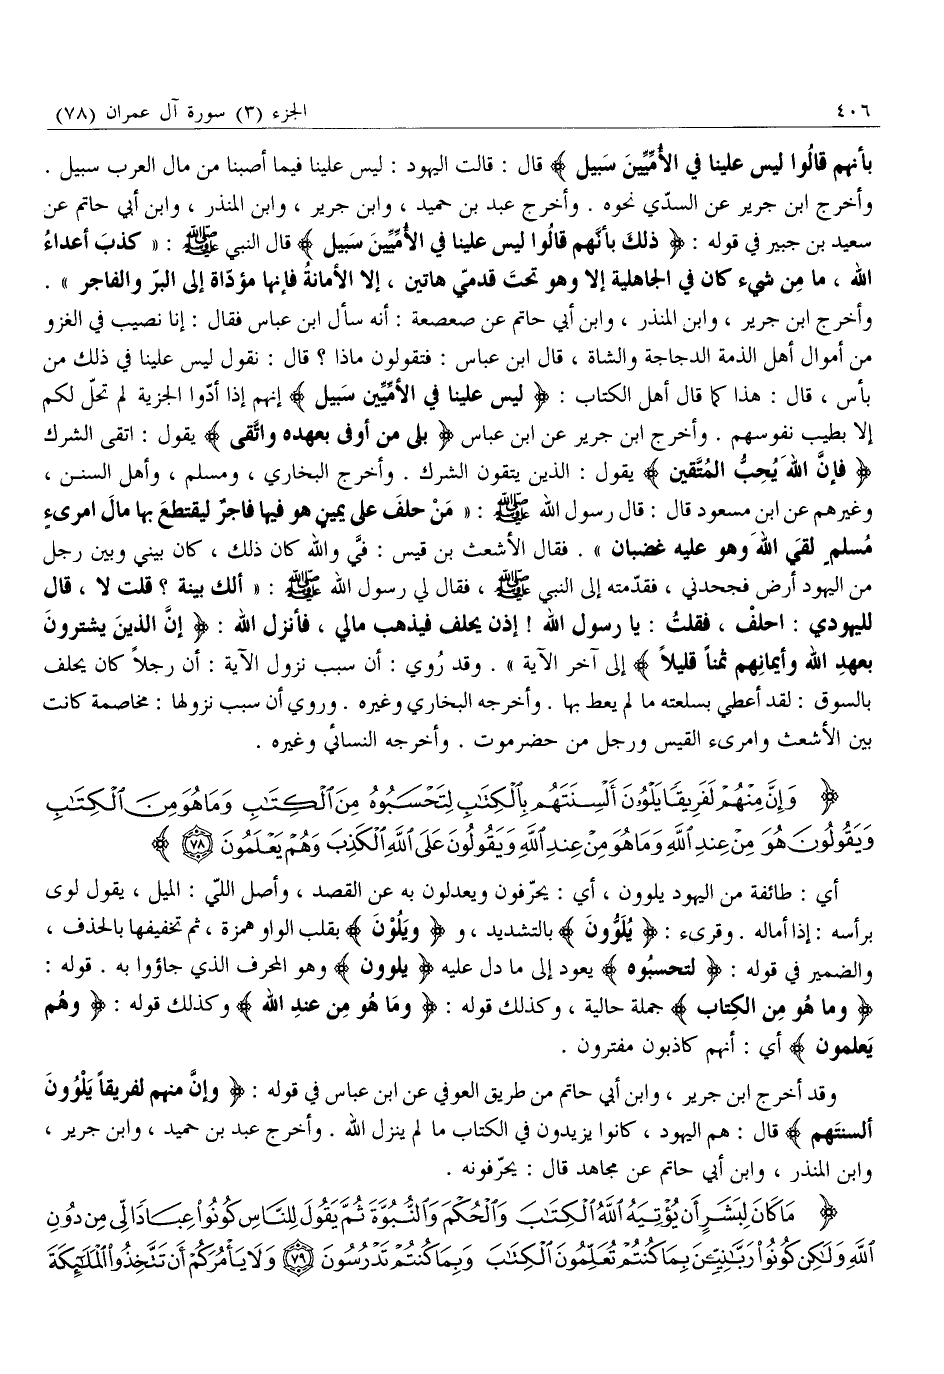 ٤٠٦ الجزء (٣) سورة آل عمران (٧٨)
بأنهم قالُوا ليس علينا في الأُمِّيِّينَ سَبيل ﴾ قال : قالت اليهود : ليس علينا فيما أصبنا من مال العرب سبيل .
وأخرج ابن جرير عن السدّي نحوه . وأخرج عبد بن حميد ، وابن جرير ، وابن المنذر ، وابن أبي حاتم عن
سعيد بن جبير في قوله : ﴿ ذلكَ بأنَّهم قالُوا ليس علينا في الأُمِّيِّينَ سَبيل ﴾ قال النبي ﷺ : « كذبَ أعداءُ
الله ، ما مِن شيء كان في الجاهلية إلا وهو تحتَ قدميّ هاتين ، إلا الأمانةُ فإنها مؤدّاة إلى البرّ والفاجر » .
وأخرج ابن جرير ، وابن المنذر ، وابن أبي حاتم عن صعصعة : أنه سأل ابن عباس فقال : إنا نصيب في الغزو
من أموال أهل الذمة الدجاجة والشاة ، قال ابن عباس : فتقولون ماذا ؟ قال : نقول ليس علينا في ذلك من
بأس ، قال : هذا كما قال أهل الكتاب : ﴿ ليس علينا في الأمِّيِّين سَبيل ﴾ إنهم إذا أدّوا الجزية لم تحلّ لكم
إلا بطيب نفوسهم . وأخرج ابن جرير عن ابن عباس ﴿ بلى من أوفى بعهده واتَّقى ﴾ يقول : اتقى الشرك
﴿ فإنَّ اللهَ يُحِبُّ المُتَّقين ﴾ يقول : الذين يتقون الشرك . وأخرج البخاري ، ومسلم ، وأهل السنن ،
وغيرهم عن ابن مسعود قال : قال رسول الله ﷺ : « مَنْ حلفَ على يمينٍ هو فيها فاجرٌ ليقتطعَ بها مالَ امرىءٍ
مُسلمٍ لقيَ اللهَ وهو عليه غضبان » . فقال الأشعث بن قيس : فيَّ والله كان ذلك ، كان بيني وبين رجل
من اليهود أرض فجحدني ، فقدّمته إلى النبي ﷺ ، فقال لي رسول الله ﷺ : « ألك بينة ؟ قلت لا ، قال
لليهودي : احلفْ ، فقلتُ : يا رسول الله ! إذن يحلف فيذهب مالي ، فأنزل الله : ﴿ إنَّ الذينَ يشترونَ
بعهدِ الله وأيمانِهم ثمناً قليلاً ﴾ إلى آخر الآية » . وقد رُوي : أن سبب نزول الآية : أن رجلاً كان يحلف
بالسوق : لقد أعطي بسلعته ما لم يعط بها . وأخرجه البخاري وغيره . وروي أن سبب نزولها : مخاصمة كانت
بين الأشعث وامرىء القيس ورجل من حضرموت . وأخرجه النسائي وغيره .
﴿ وَإِنَّ مِنْهُمْ لَفَرِيقًا يَلْوُۥنَ أَلْسِنَتَهُم بِٱلْكِتَٰبِ لِتَحْسَبُوهُ مِنَ ٱلْكِتَٰبِ وَمَا هُوَ مِنَ ٱلْكِتَٰبِ
وَيَقُولُونَ هُوَ مِنْ عِندِ ٱللَّهِ وَمَا هُوَ مِنْ عِندِ ٱللَّهِ وَيَقُولُونَ عَلَى ٱللَّهِ ٱلْكَذِبَ وَهُمْ يَعْلَمُونَ ٧٨ ﴾
أي : طائفة من اليهود يلوون ، أي : يحرّفون ويعدلون به عن القصد ، وأصل اللّي : الميل ، يقول لوى
برأسه : إذا أماله . وقرىء : ﴿ يُلَوُّونَ ﴾ بالتشديد ، و ﴿ ويَلُوْنَ ﴾ بقلب الواو همزة ، ثم تخفيفها بالحذف ،
والضمير في قوله : ﴿ لتحسبُوه ﴾ يعود إلى ما دل عليه ﴿ يلوون ﴾ وهو المحرف الذي جاؤوا به . قوله :
﴿ وما هُو مِن الكِتاب ﴾ جملة حالية ، وكذلك قوله : ﴿ ومَا هُو مِن عندِ الله ﴾ وكذلك قوله : ﴿ وهُم
يَعلمون ﴾ أي : أنهم كاذبون مفترون .
وقد أخرج ابن جرير ، وابن أبي حاتم من طريق العوفي عن ابن عباس في قوله : ﴿ وإنَّ منهم لفريقاً يَلْوُونَ
ألسنتَهم ﴾ قال : هم اليهود ، كانوا يزيدون في الكتاب ما لم ينزل الله . وأخرج عبد بن حميد ، وابن جرير ،
وابن المنذر ، وابن أبي حاتم عن مجاهد قال : يحرّفونه .
﴿ مَا كَانَ لِبَشَرٍ أَن يُؤْتِيَهُ ٱللَّهُ ٱلْكِتَٰبَ وَٱلْحُكْمَ وَٱلنُّبُوَّةَ ثُمَّ يَقُولَ لِلنَّاسِ كُونُوا۟ عِبَادًا لِّى مِن دُونِ
ٱللَّهِ وَلَٰكِن كُونُوا۟ رَبَّٰنِيِّۦنَ بِمَا كُنتُمْ تُعَلِّمُونَ ٱلْكِتَٰبَ وَبِمَا كُنتُمْ تَدْرُسُونَ ٧٩ وَلَا يَأْمُرَكُمْ أَن تَتَّخِذُوا۟ ٱلْمَلَٰٓئِكَةَ